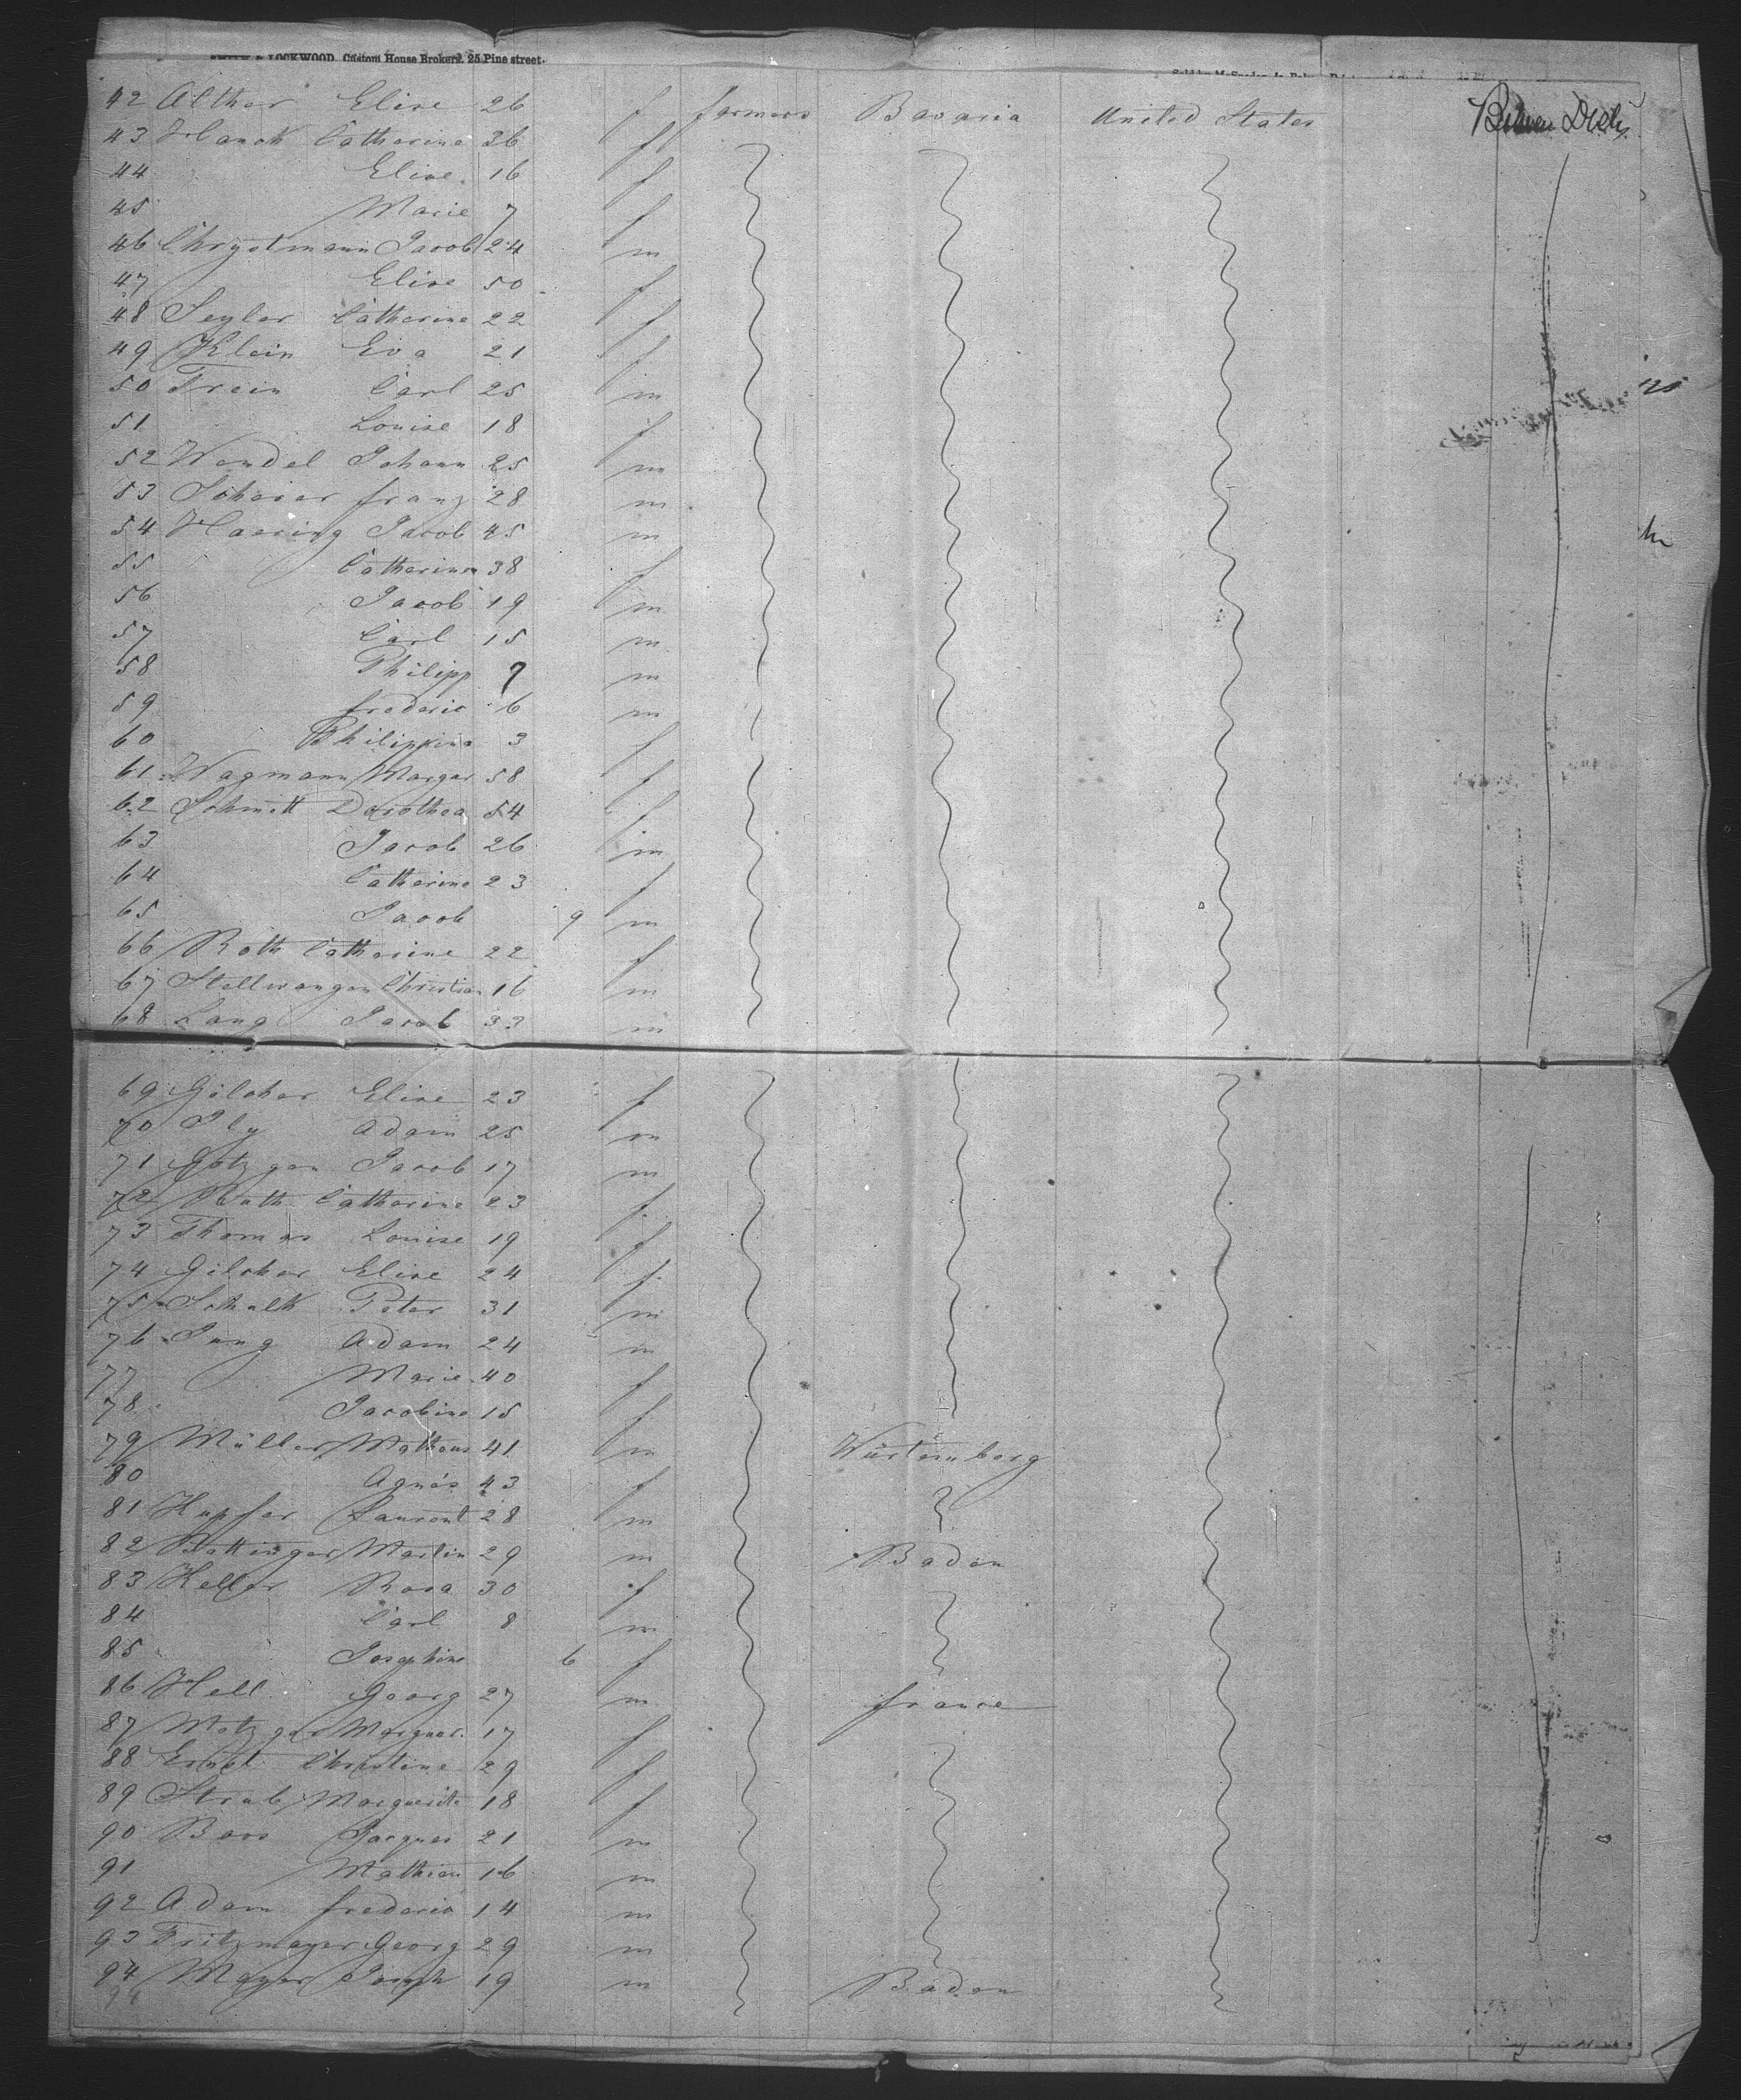 LOCKWOOD, Custom House Brokers, 25 Pine street.
42 Alther Elise 26 f farmers Bavaria United States Between Decks
43 Hanck Catherine 36 f
44 Elise 16 f
45 Marie 7 f
46 Chrystmann Jacob 24 m
47 Elise 50 f
48 Seyler Catherine 22 f
49 Klein Eva 21 f
50 Trein Carl 25 m
51 Louise 18 f
52 Wendel Johann 25 m
53 Scherer franz 28 m
54 Haering Jacob 45 m
55 Catherine 38 f
56 Jacob 19 m
57 Carl 15 m
58 Philipp 9 m
59 frederic 6 m
60 Philippina 3 f
61 Wagmann Margar 58 f
62 Schmitt Dorothea 54 f
63 Jacob 26 m
64 Catherine 23 f
65 Jacob 9 m
66 Roth Catherine 22 f
67 Stellwangen Christian 16 m
68 Lang Jacob 33 m
69 Gilcher Elise 23 f
70 Ily Adam 25 m
71 Gotzgen Jacob 17 m
72 Roth Catherine 23 f
73 Thomas Louise 19 f
74 Gilcher Elise 24 f
75 Schalk Peter 31 m
76 Jung Adam 24 m
77 Marie 40 f
78 Jacobine 15 f
79 Müller Matheus 41 m Würtemberg
80 Agnés 43 f
81 Hupfer Laurent 28 m
82 Martin 29 m Baden
83 Keller Rosa 30 f
84 Carl 8 m
85 Josephine 6 f
86 Hell Georg 27 m france
87 Metzger Marguer. 17 f
88 Ernst Christine 29 f
89 Strub Marguerite 18 f
90 Boos Jacques 21 m
91 Mathieu 16 m
92 Adam frederic 14 m
93 Fritzmayer Georg 29 m
94 Mayer Joseph 19 m Baden